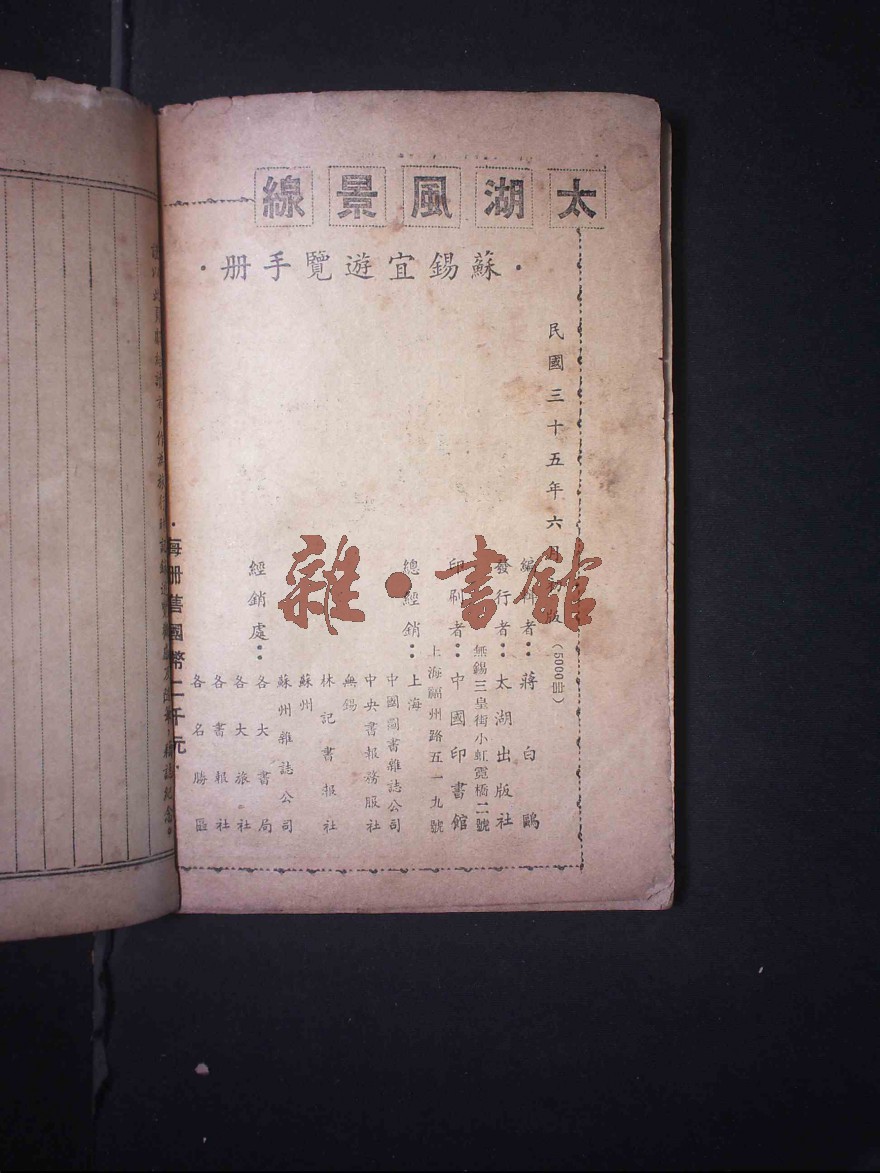 太湖風景線
·蘇錫宜遊覽手册·
民國三十五年六月初版（5000冊）
編輯者：蔣白鷗
發行者：太湖出版社
無錫三皇街小虹霓橋二號
印刷者：中國印書館
上海福州路五一九號
總經銷：上海
中國圖書雜誌公司
中央書報務服社
無錫
林記書報社
蘇州
蘇州雜誌公司
經銷處：各大書局
各大旅社
各書報社
各名勝區
·每册售國幣二仟元·
雜·書館